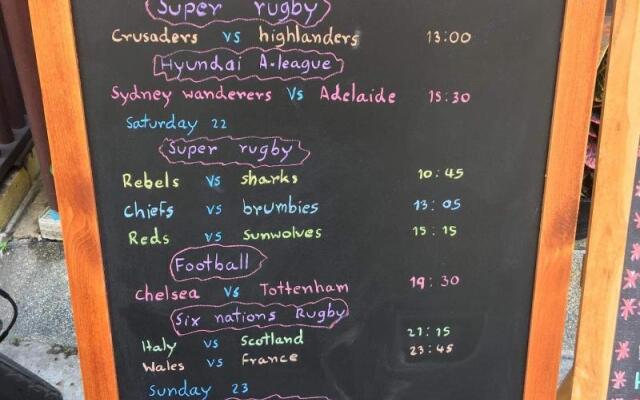 Super rugby
Crusaders vs highlanders 13:00
Hyundai A-league
Sydney wanderers Vs Adelaide 15:30
Saturday 22
Super rugby
Rebels vs sharks 10:45
Chiefs vs brumbies 13:05
Reds vs sunwolves 15:15
Football
Chelsea vs Tottenham 19:30
Six nations Rugby
Italy vs Scotland 21:15
Wales vs France 23:45
Sunday 23